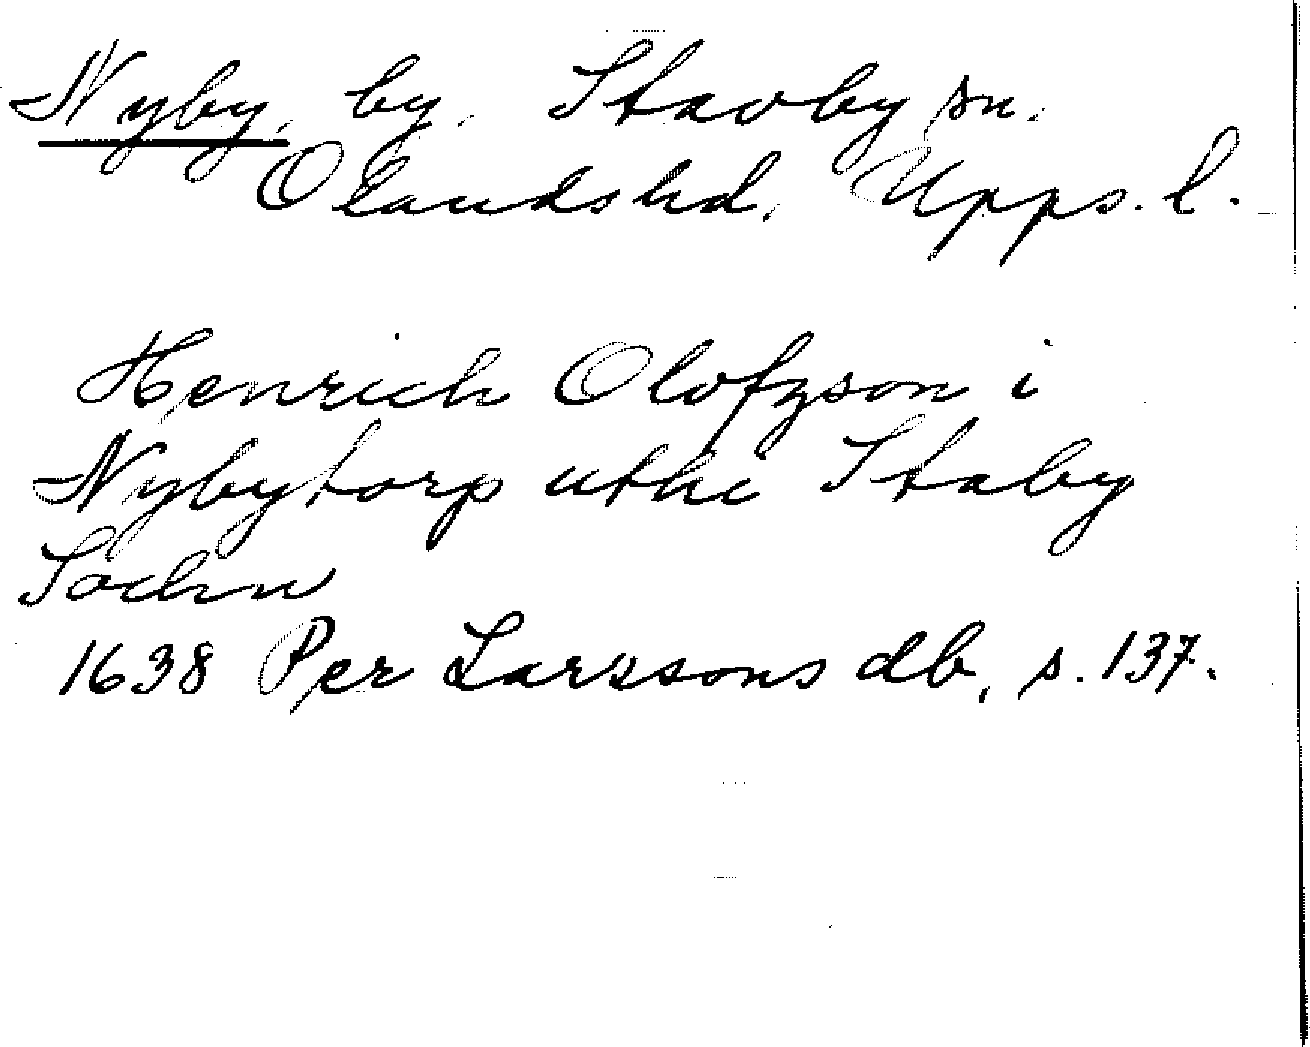 Nyby, by, Stavby sn.
Olands hd, Upps. l.
Henrich Olofzson i
Nybytorp uthi Staby
Sochn
1638 Per Larssons db, s. 137.